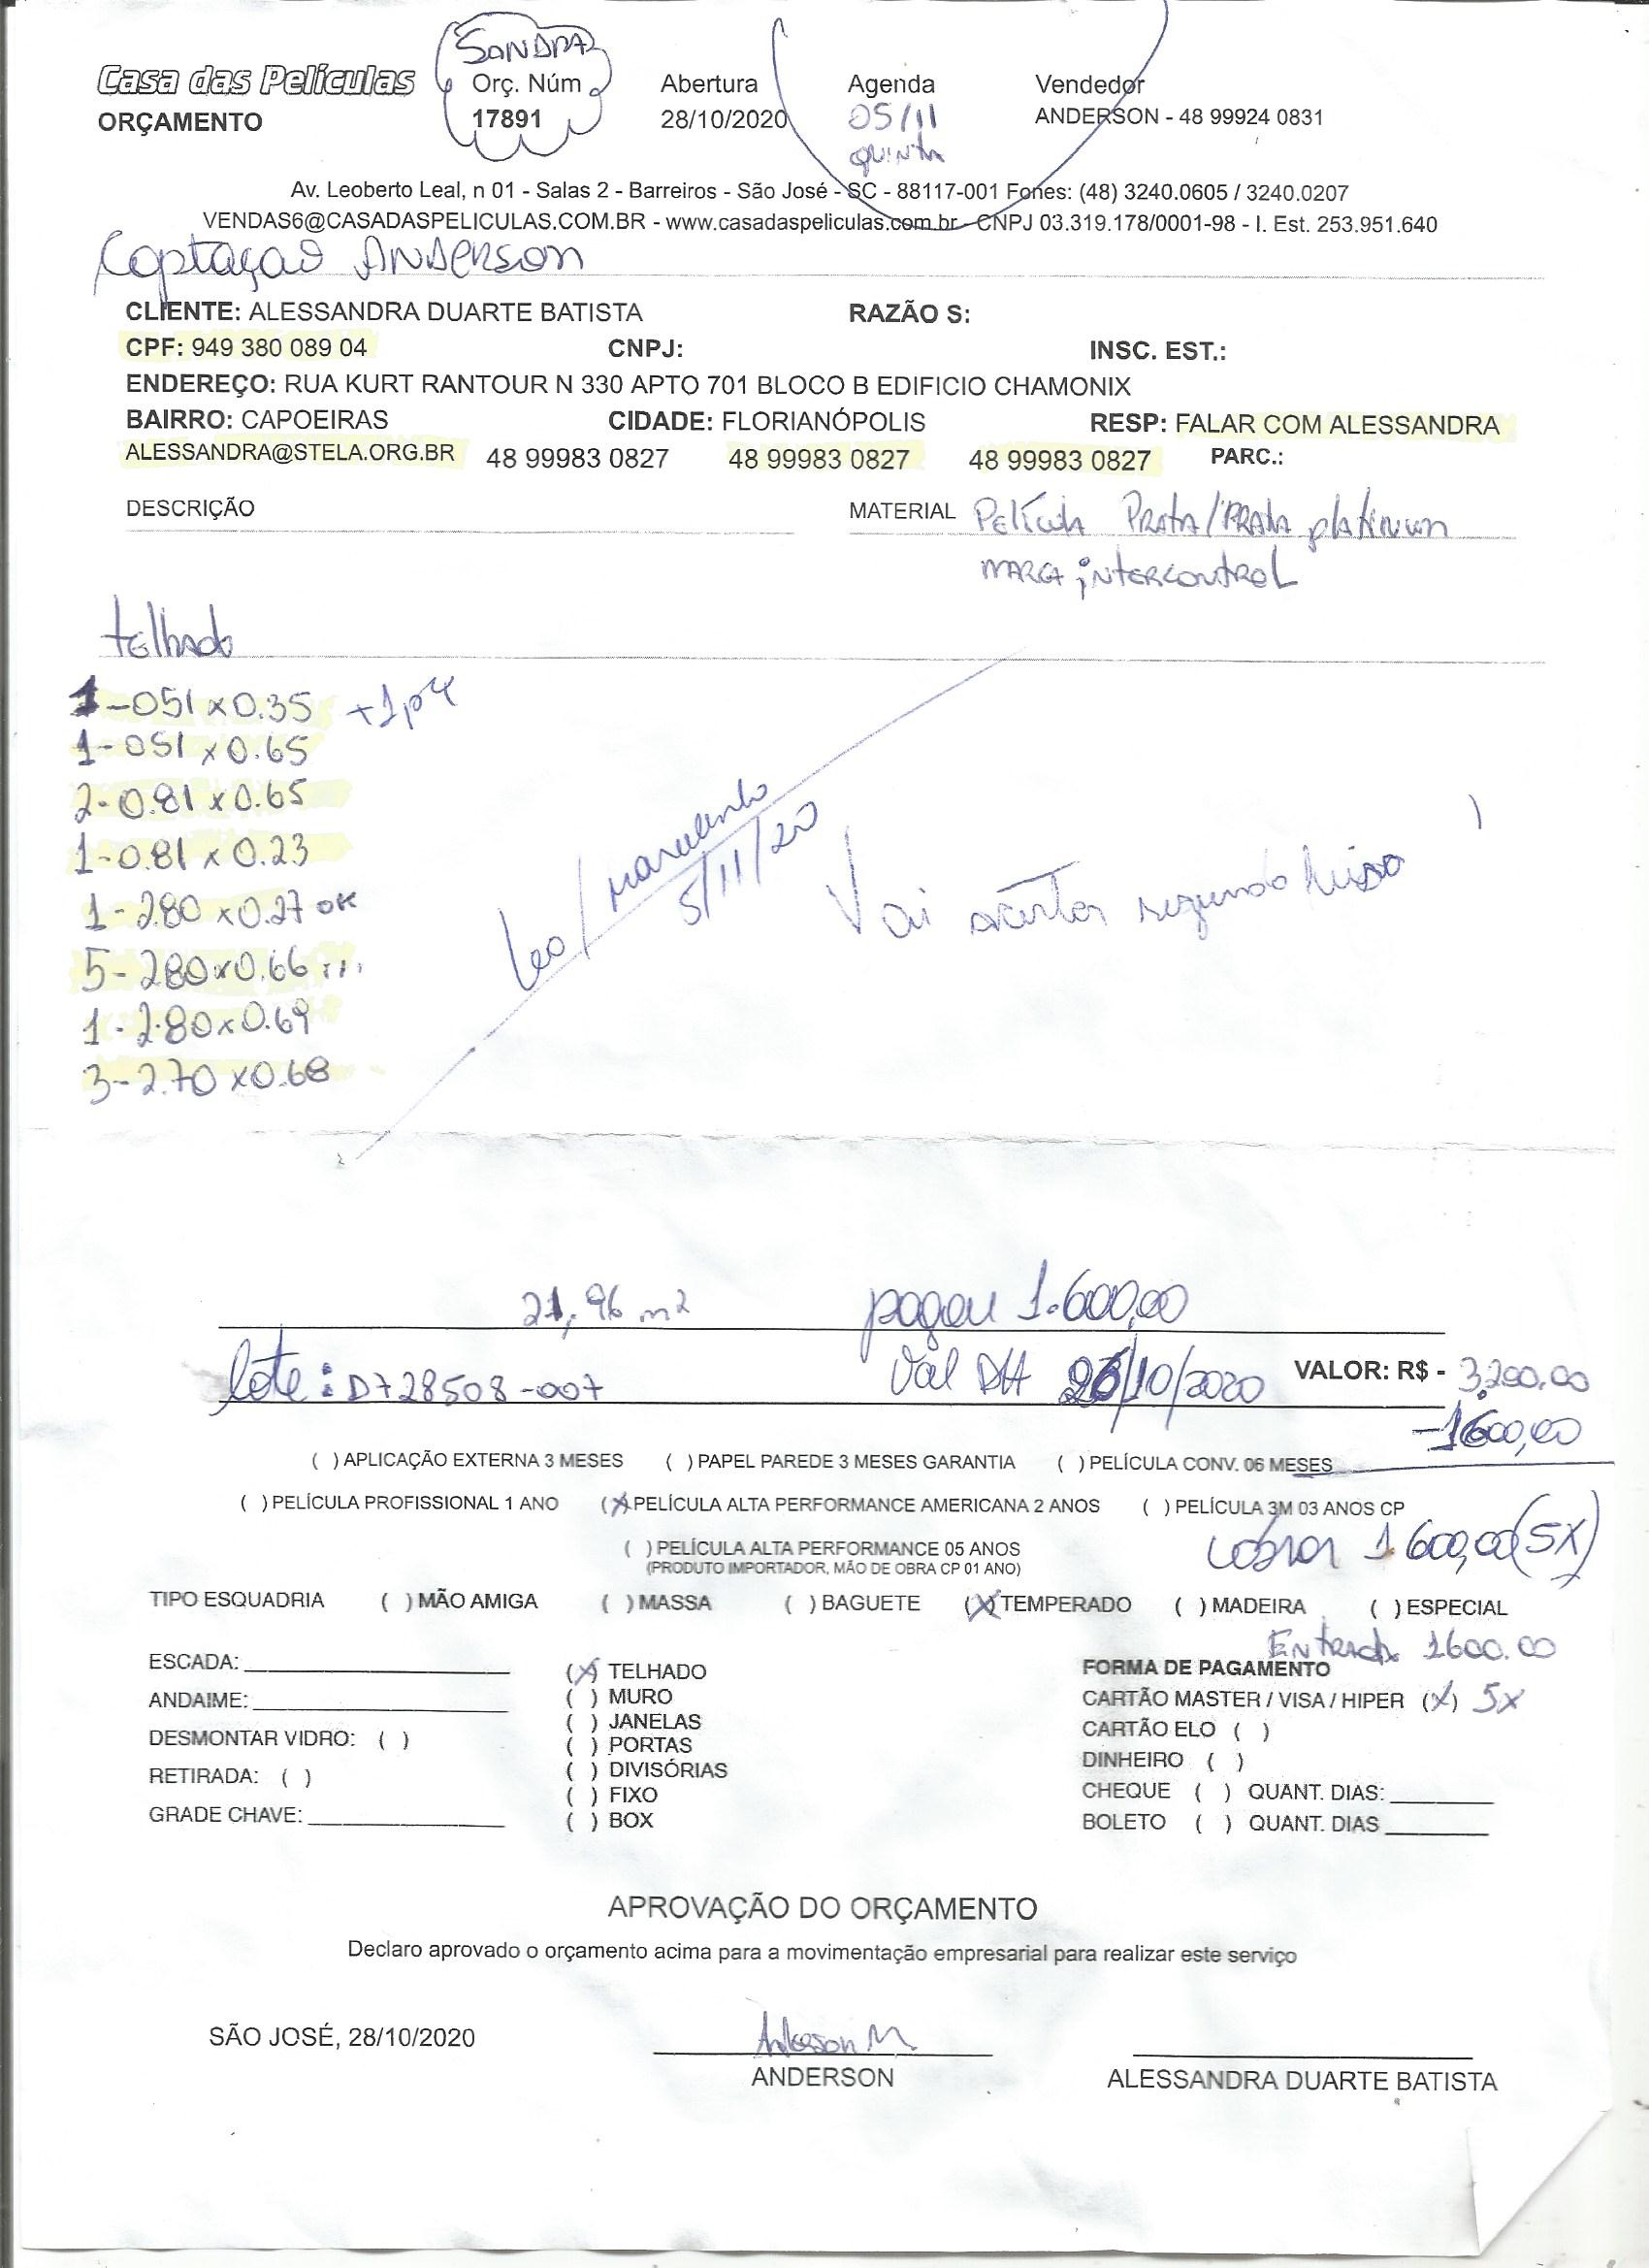 SANDRA
Casa das Películas Orç. Núm Abertura Agenda Vendedor
ORÇAMENTO 17891 28/10/2020 05/11 ANDERSON - 48 99924 0831
quinta
Av. Leoberto Leal, n 01 - Salas 2 - Barreiros - São José - SC - 88117-001 Fones: (48) 3240.0605 / 3240.0207
VENDAS6@CASADASPELICULAS.COM.BR - www.casadaspeliculas.com.br - CNPJ 03.319.178/0001-98 - I. Est. 253.951.640
Captação ANDERSON
CLIENTE: ALESSANDRA DUARTE BATISTA RAZÃO S:
CPF: 949 380 089 04 CNPJ: INSC. EST.:
ENDEREÇO: RUA KURT RANTOUR N 330 APTO 701 BLOCO B EDIFICIO CHAMONIX
BAIRRO: CAPOEIRAS CIDADE: FLORIANÓPOLIS RESP: FALAR COM ALESSANDRA
ALESSANDRA@STELA.ORG.BR 48 99983 0827 48 99983 0827 48 99983 0827 PARC.:
DESCRIÇÃO MATERIAL Película PRATA/PRATA platinum
MARCA INTERCONTROL
telhado
1-051x0.35 +1pç
1-051x0.65
2-0.81x0.65
1-0.81x0.23
1-2.80x0.27 OK
5-280x0.66
1-2.80x0.69
3-2.70x0.68
Leo/
5/11/20
Vai segundo
21,96 m² pagou 1.600,00
lote: D728508-007 26/10/2020 VALOR: R$ - 3.200,00
-1600,00
( ) APLICAÇÃO EXTERNA 3 MESES ( ) PAPEL PAREDE 3 MESES GARANTIA ( ) PELÍCULA CONV. 06 MESES
( ) PELÍCULA PROFISSIONAL 1 ANO (X) PELÍCULA ALTA PERFORMANCE AMERICANA 2 ANOS ( ) PELÍCULA 3M 03 ANOS CP
( ) PELÍCULA ALTA PERFORMANCE 05 ANOS cobrar 1.600,00 (5X)
(PRODUTO IMPORTADOR, MÃO DE OBRA CP 01 ANO)
TIPO ESQUADRIA ( ) MÃO AMIGA ( ) MASSA ( ) BAGUETE (X) TEMPERADO ( ) MADEIRA ( ) ESPECIAL
Entrada 1600.00
ESCADA: (X) TELHADO FORMA DE PAGAMENTO
ANDAIME: ( ) MURO CARTÃO MASTER / VISA / HIPER (X) 5x
( ) JANELAS CARTÃO ELO ( )
DESMONTAR VIDRO: ( ) ( ) PORTAS DINHEIRO ( )
RETIRADA: ( ) ( ) DIVISÓRIAS CHEQUE ( ) QUANT. DIAS:
( ) FIXO
GRADE CHAVE: ( ) BOX BOLETO ( ) QUANT. DIAS
APROVAÇÃO DO ORÇAMENTO
Declaro aprovado o orçamento acima para a movimentação empresarial para realizar este serviço
SÃO JOSÉ, 28/10/2020 Anderson M.
ANDERSON ALESSANDRA DUARTE BATISTA